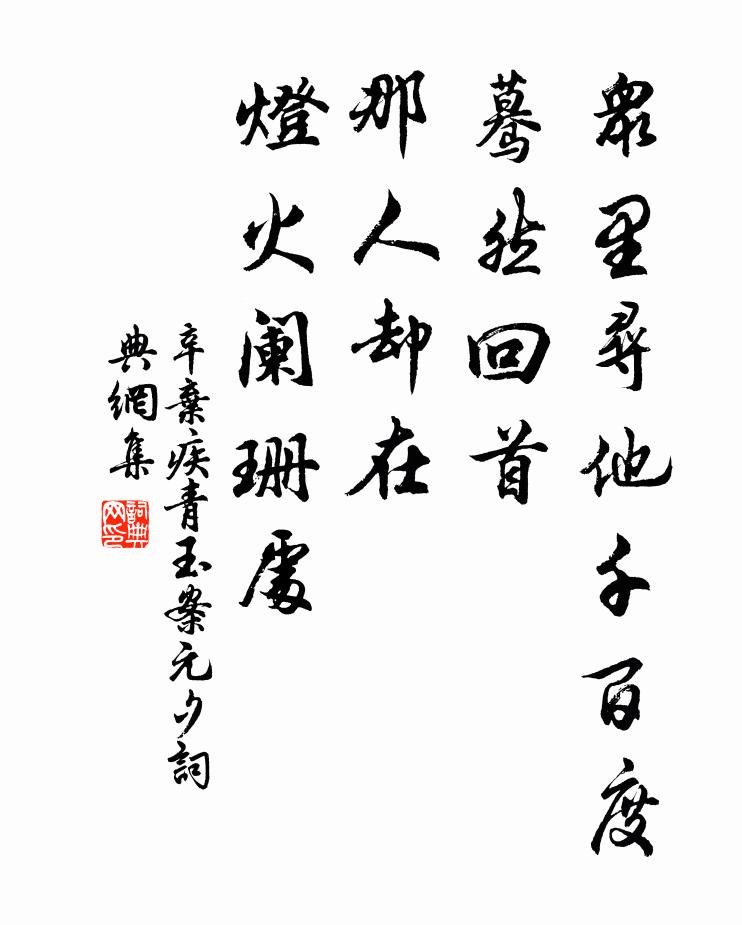 眾里尋他千百度
驀然回首
那人却在
燈火阑珊處
辛棄疾青玉案元夕詞
典網集
詞典
网印